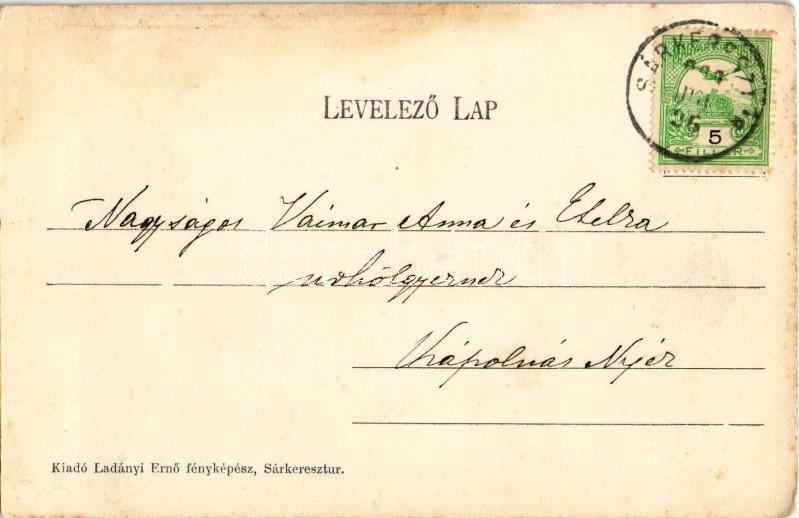 LEVELEZŐ LAP
SÁRKERESZTÚR
5
FILLÉR
Nagyságos Vaimar Anna és Etelka
úrhölgyeknek
Kápolnás Nyék
Kiadó Ladányi Ernő fényképész, Sárkeresztur.